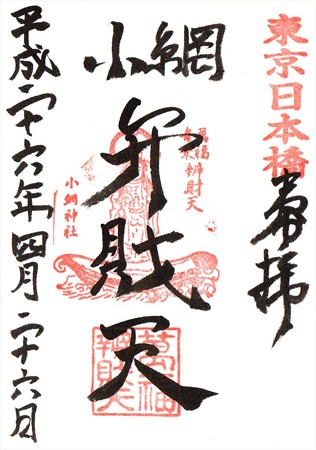 東京日本橋
奉拝
小網
弁財天
萬福舟乗弁財天
小網神社
平成二十六年四月二十六日